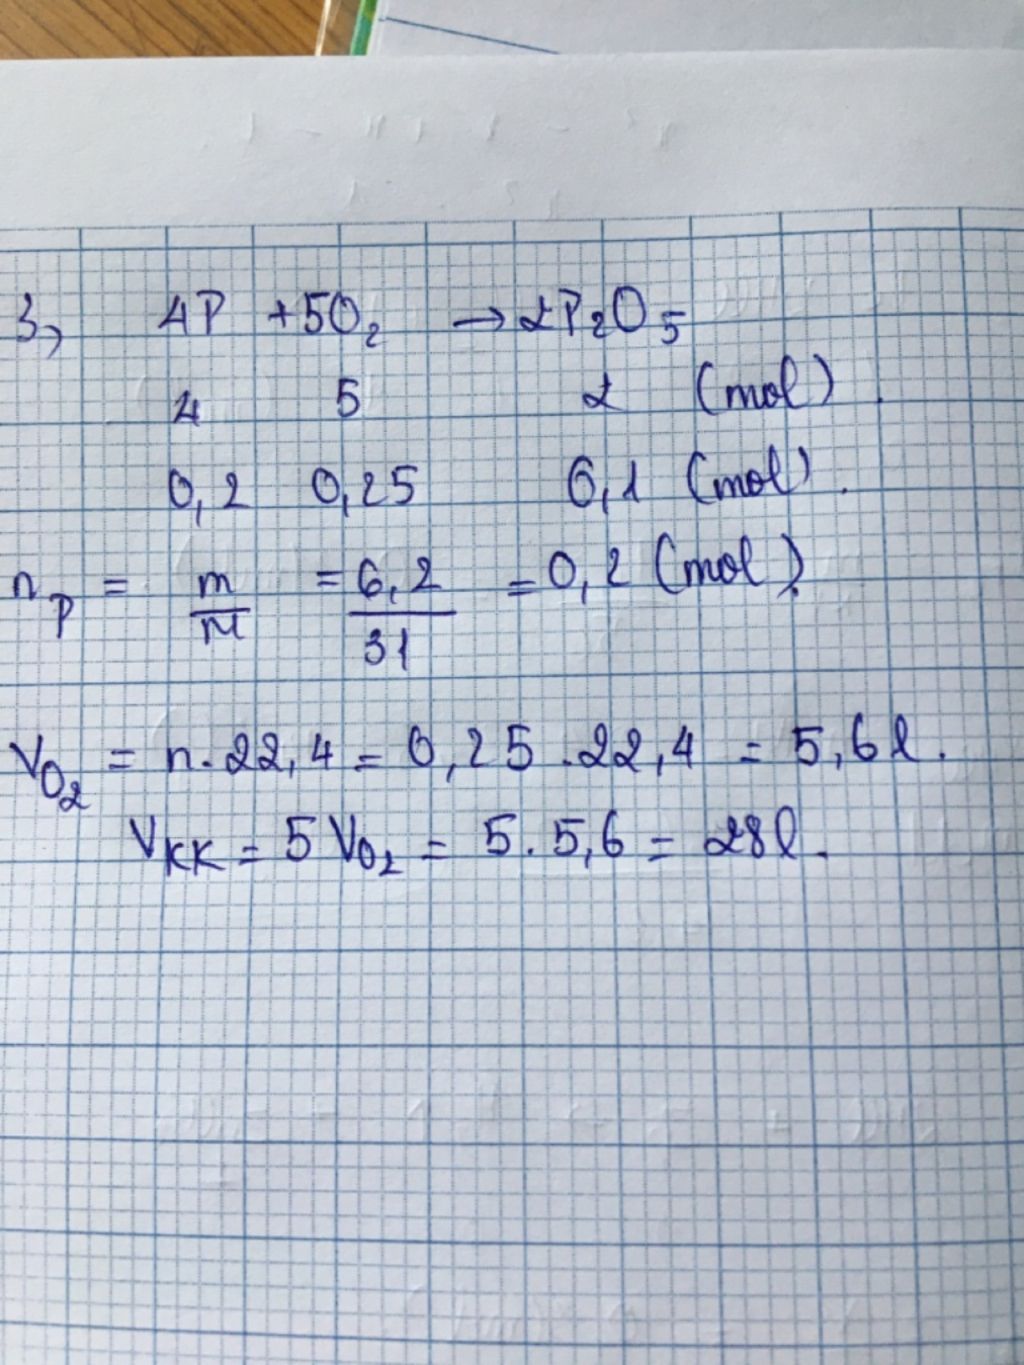 3, 4P + 5O₂ → 2P₂O₅
4 5 2 (mol).
0,2 0,25 0,1 (mol).
nP = m/M = 6,2/31 = 0,2 (mol).
VO₂ = n. 22,4 = 0,25 . 22,4 = 5,6l.
VKK = 5 VO₂ = 5. 5,6 = 28l.